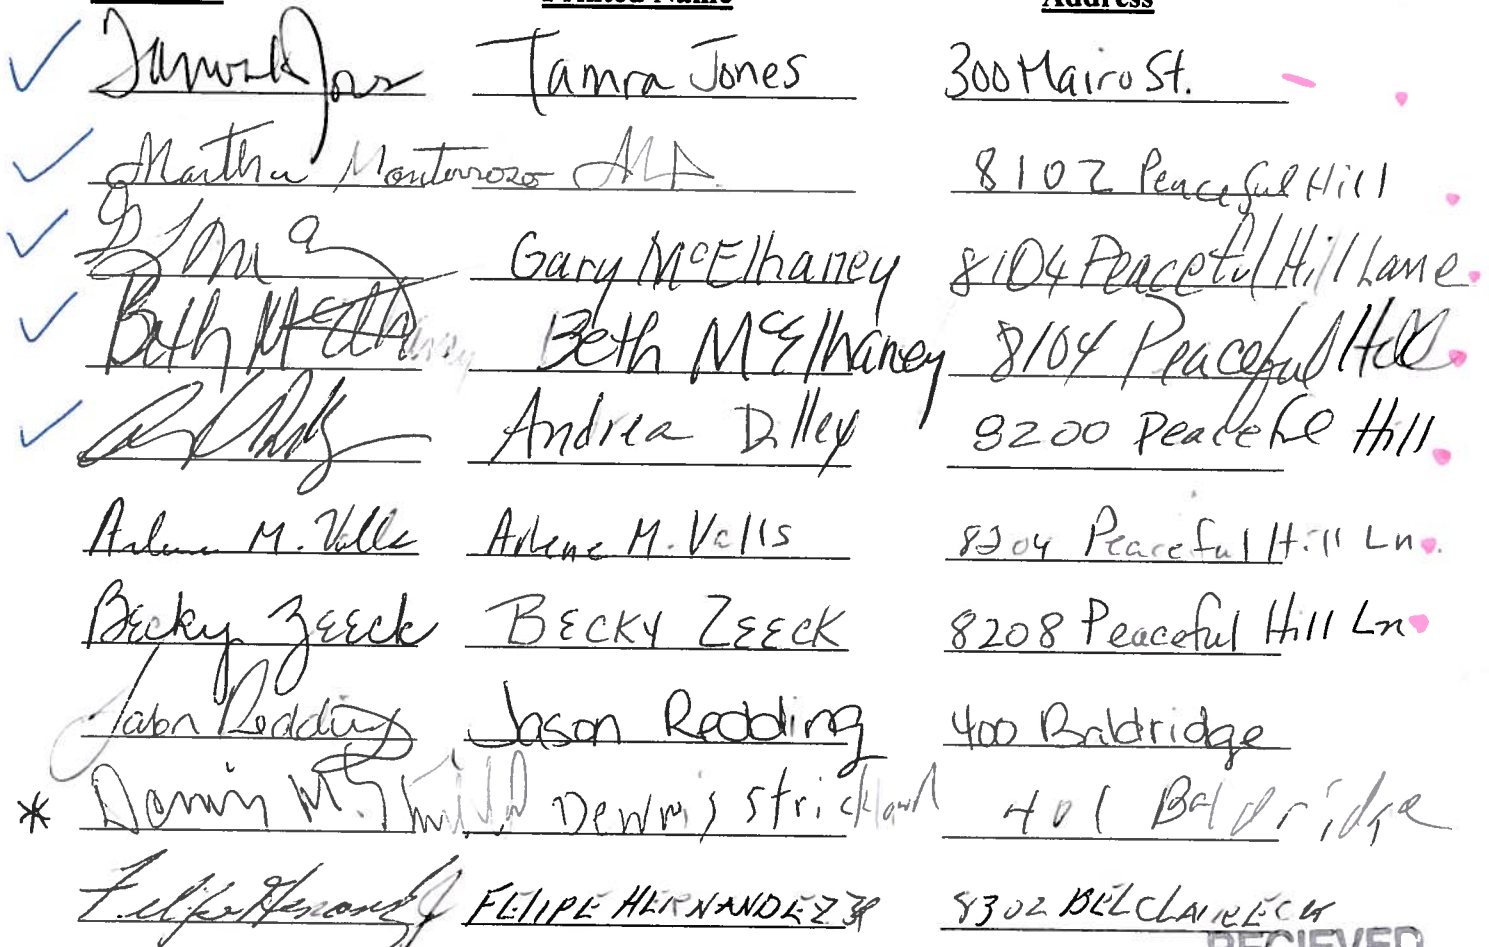 Printed Name Address
Tamra Jones Tamra Jones 300 Mairo St.
Martha Monterrozo M.A. 8102 Peaceful Hill
Gary McElhaney 8104 Peaceful Hill Lane
Beth McElhaney Beth McElhaney 8104 Peaceful Hill
Andrea Dilley 8200 Peaceful Hill
Arlene M. Valls Arlene M. Valls 8204 Peaceful Hill Ln.
Becky Zeeck BECKY ZEECK 8208 Peaceful Hill Ln
Jason Redding Jason Redding 400 Baldridge
* Dennis M. Strickland Dennis Strickland 401 Baldridge
Felipe Hernandez Jr FELIPE HERNANDEZ JR 8302 BELCLAIRE CR
RECIEVED